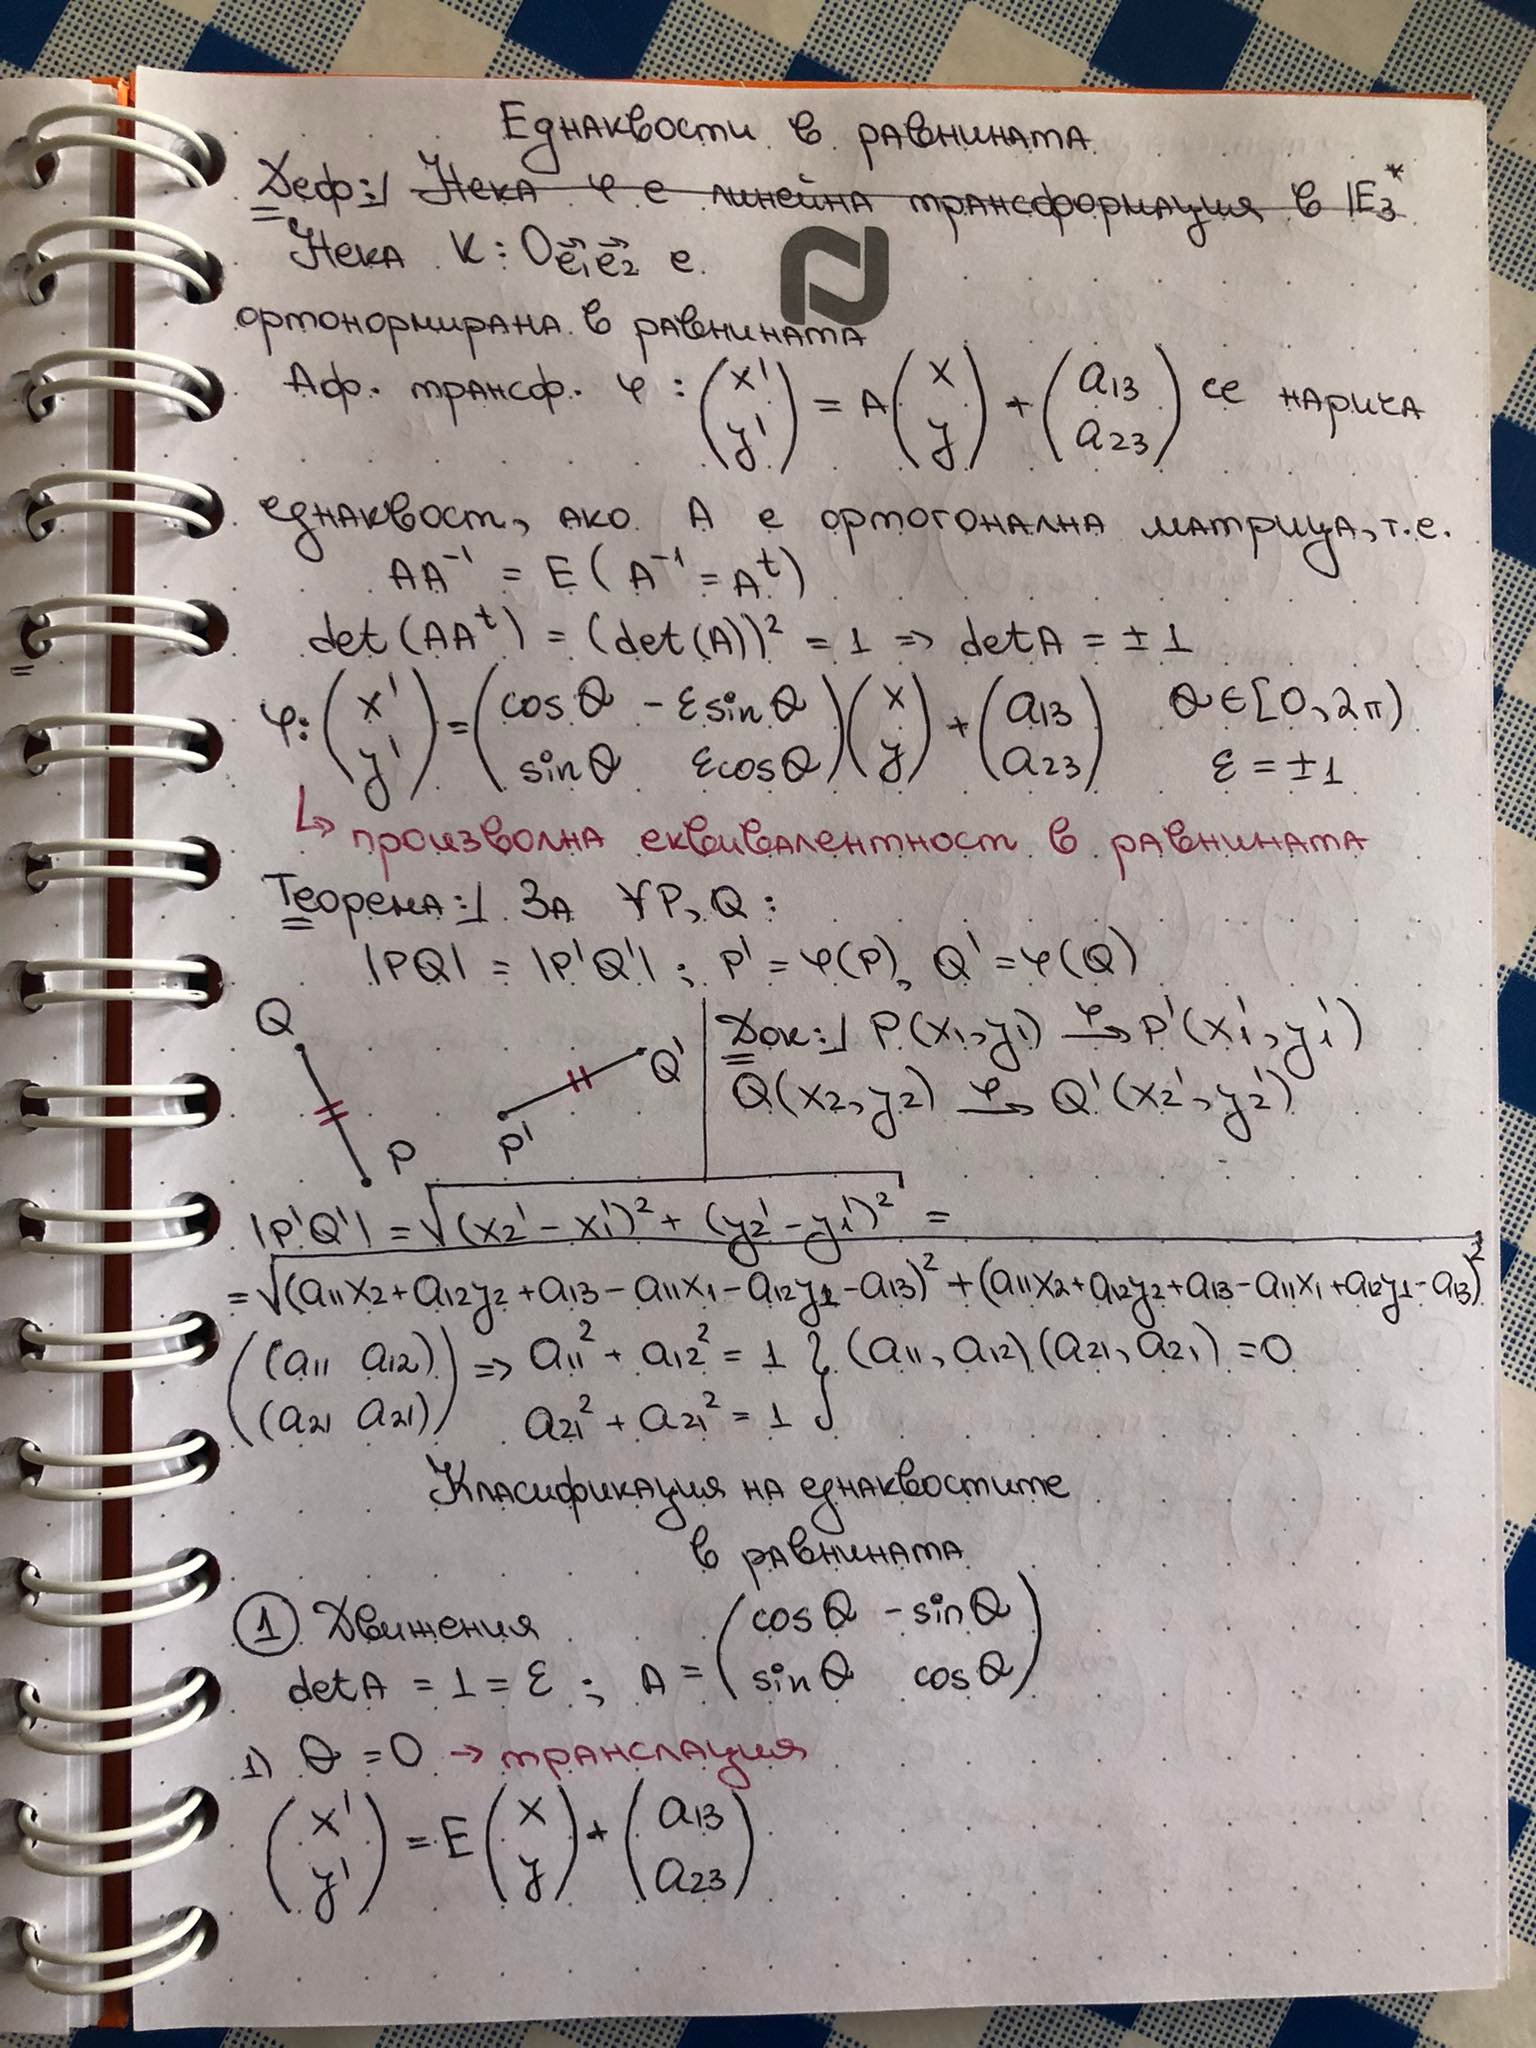 Еднаквости в равнината
Деф:/ Нека φ е линейна трансформация в E₃*
Нека K: Oe₁⃗e₂⃗ е
ортонормирана в равнината
Аф. трансф. φ: (x' y') = A (x y) + (a₁₃ a₂₃) се нарича
еднаквост, ако A е ортогонална матрица, т.е.
AA⁻¹ = E (A⁻¹ = Aᵗ)
det(AAᵗ) = (det(A))² = 1 => detA = ±1
φ: (x' y') = (cosθ -εsinθ sinθ εcosθ) (x y) + (a₁₃ a₂₃) θ∈[0, 2π) ε = ±1
↳ произволна еквивалентност в равнината
Теорема:/ За ∀P, Q:
|PQ| = |P'Q'| ; P' = φ(P), Q' = φ(Q)
Q P P' Q'
Док:/ P(x₁, y₁) φ→ P'(x₁', y₁')
Q(x₂, y₂) φ→ Q'(x₂', y₂')
|P'Q'| = √(x₂' - x₁')² + (y₂' - y₁')² =
= √(a₁₁x₂ + a₁₂y₂ + a₁₃ - a₁₁x₁ - a₁₂y₁ - a₁₃)² + (a₁₁x₂ + a₁₂y₂ + a₁₃ - a₁₁x₁ + a₁₂y₁ - a₁₃)²
((a₁₁ a₁₂) (a₂₁ a₂₁)) => a₁₁² + a₁₂² = 1 } (a₁₁, a₁₂)(a₂₁, a₂₁) = 0
a₂₁² + a₂₁² = 1
Класификация на еднаквостите
в равнината
① Движения
detA = 1 = ε ; A = (cosθ -sinθ sinθ cosθ)
1) θ = 0 → транслация
(x' y') = E (x y) + (a₁₃ a₂₃)